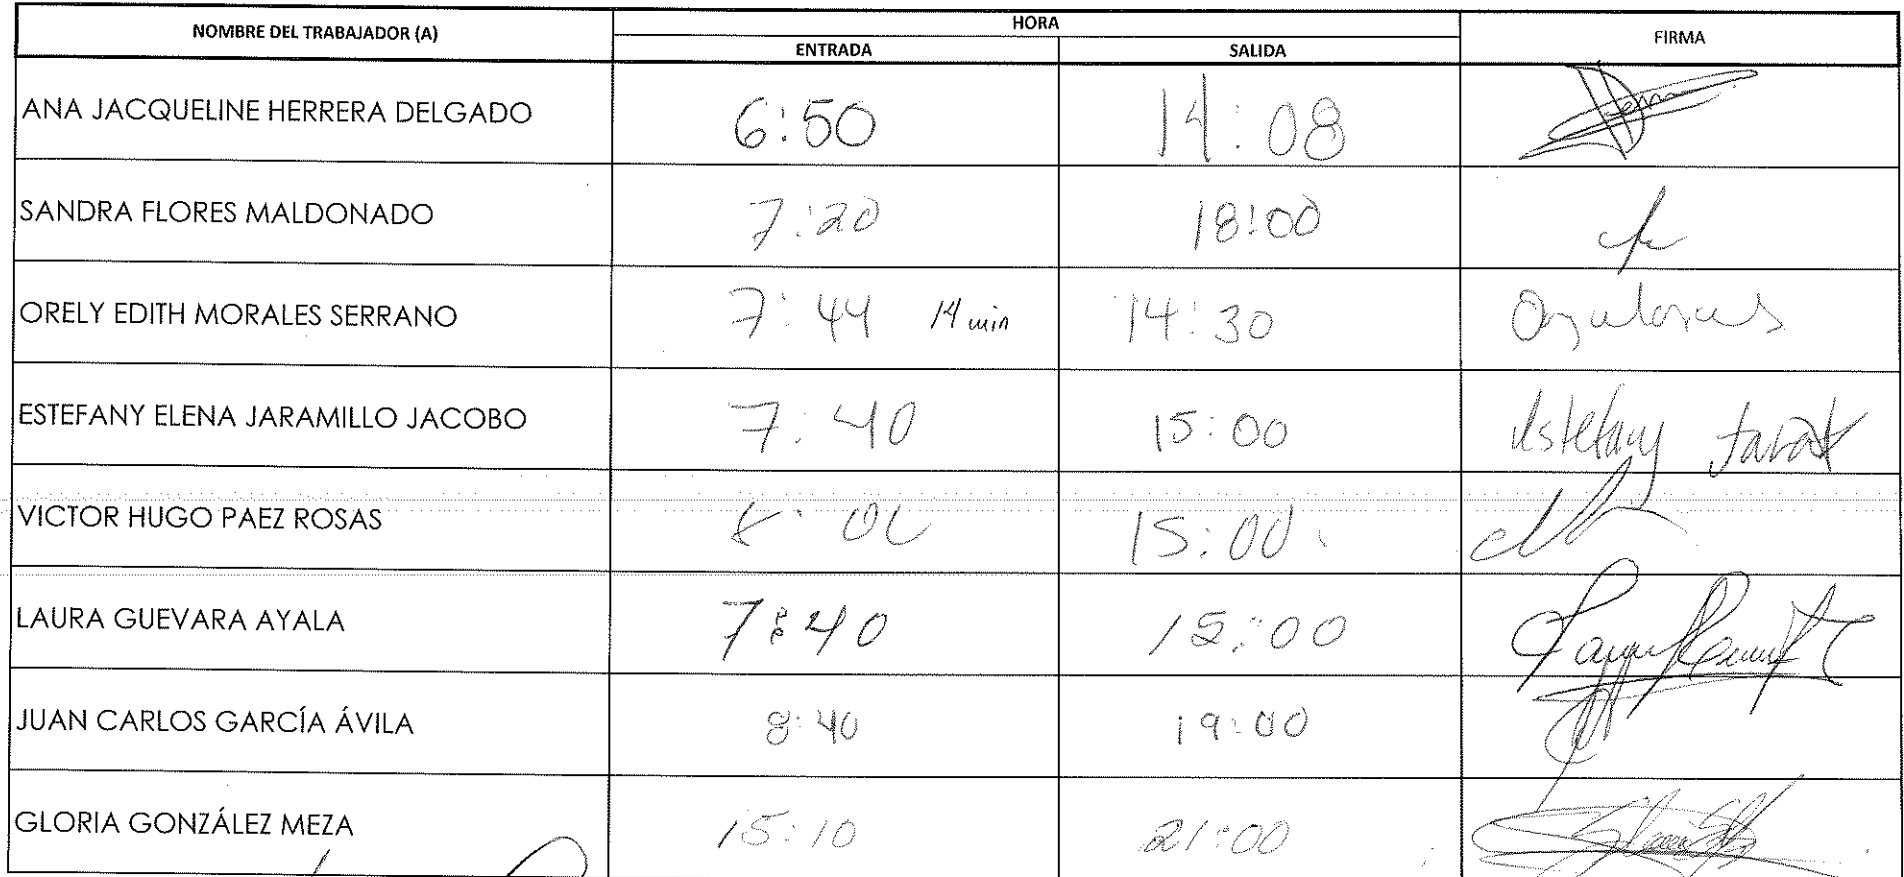 NOMBRE DEL TRABAJADOR (A) HORA FIRMA
ENTRADA SALIDA
ANA JACQUELINE HERRERA DELGADO 6:50 14:08
SANDRA FLORES MALDONADO 7:20 18:00
ORELY EDITH MORALES SERRANO 7:44 14 min 14:30
ESTEFANY ELENA JARAMILLO JACOBO 7:40 15:00 Estefany
VICTOR HUGO PAEZ ROSAS 15:00
LAURA GUEVARA AYALA 7:40 15:00
JUAN CARLOS GARCÍA ÁVILA 8:40 19:00
GLORIA GONZÁLEZ MEZA 15:10 21:00